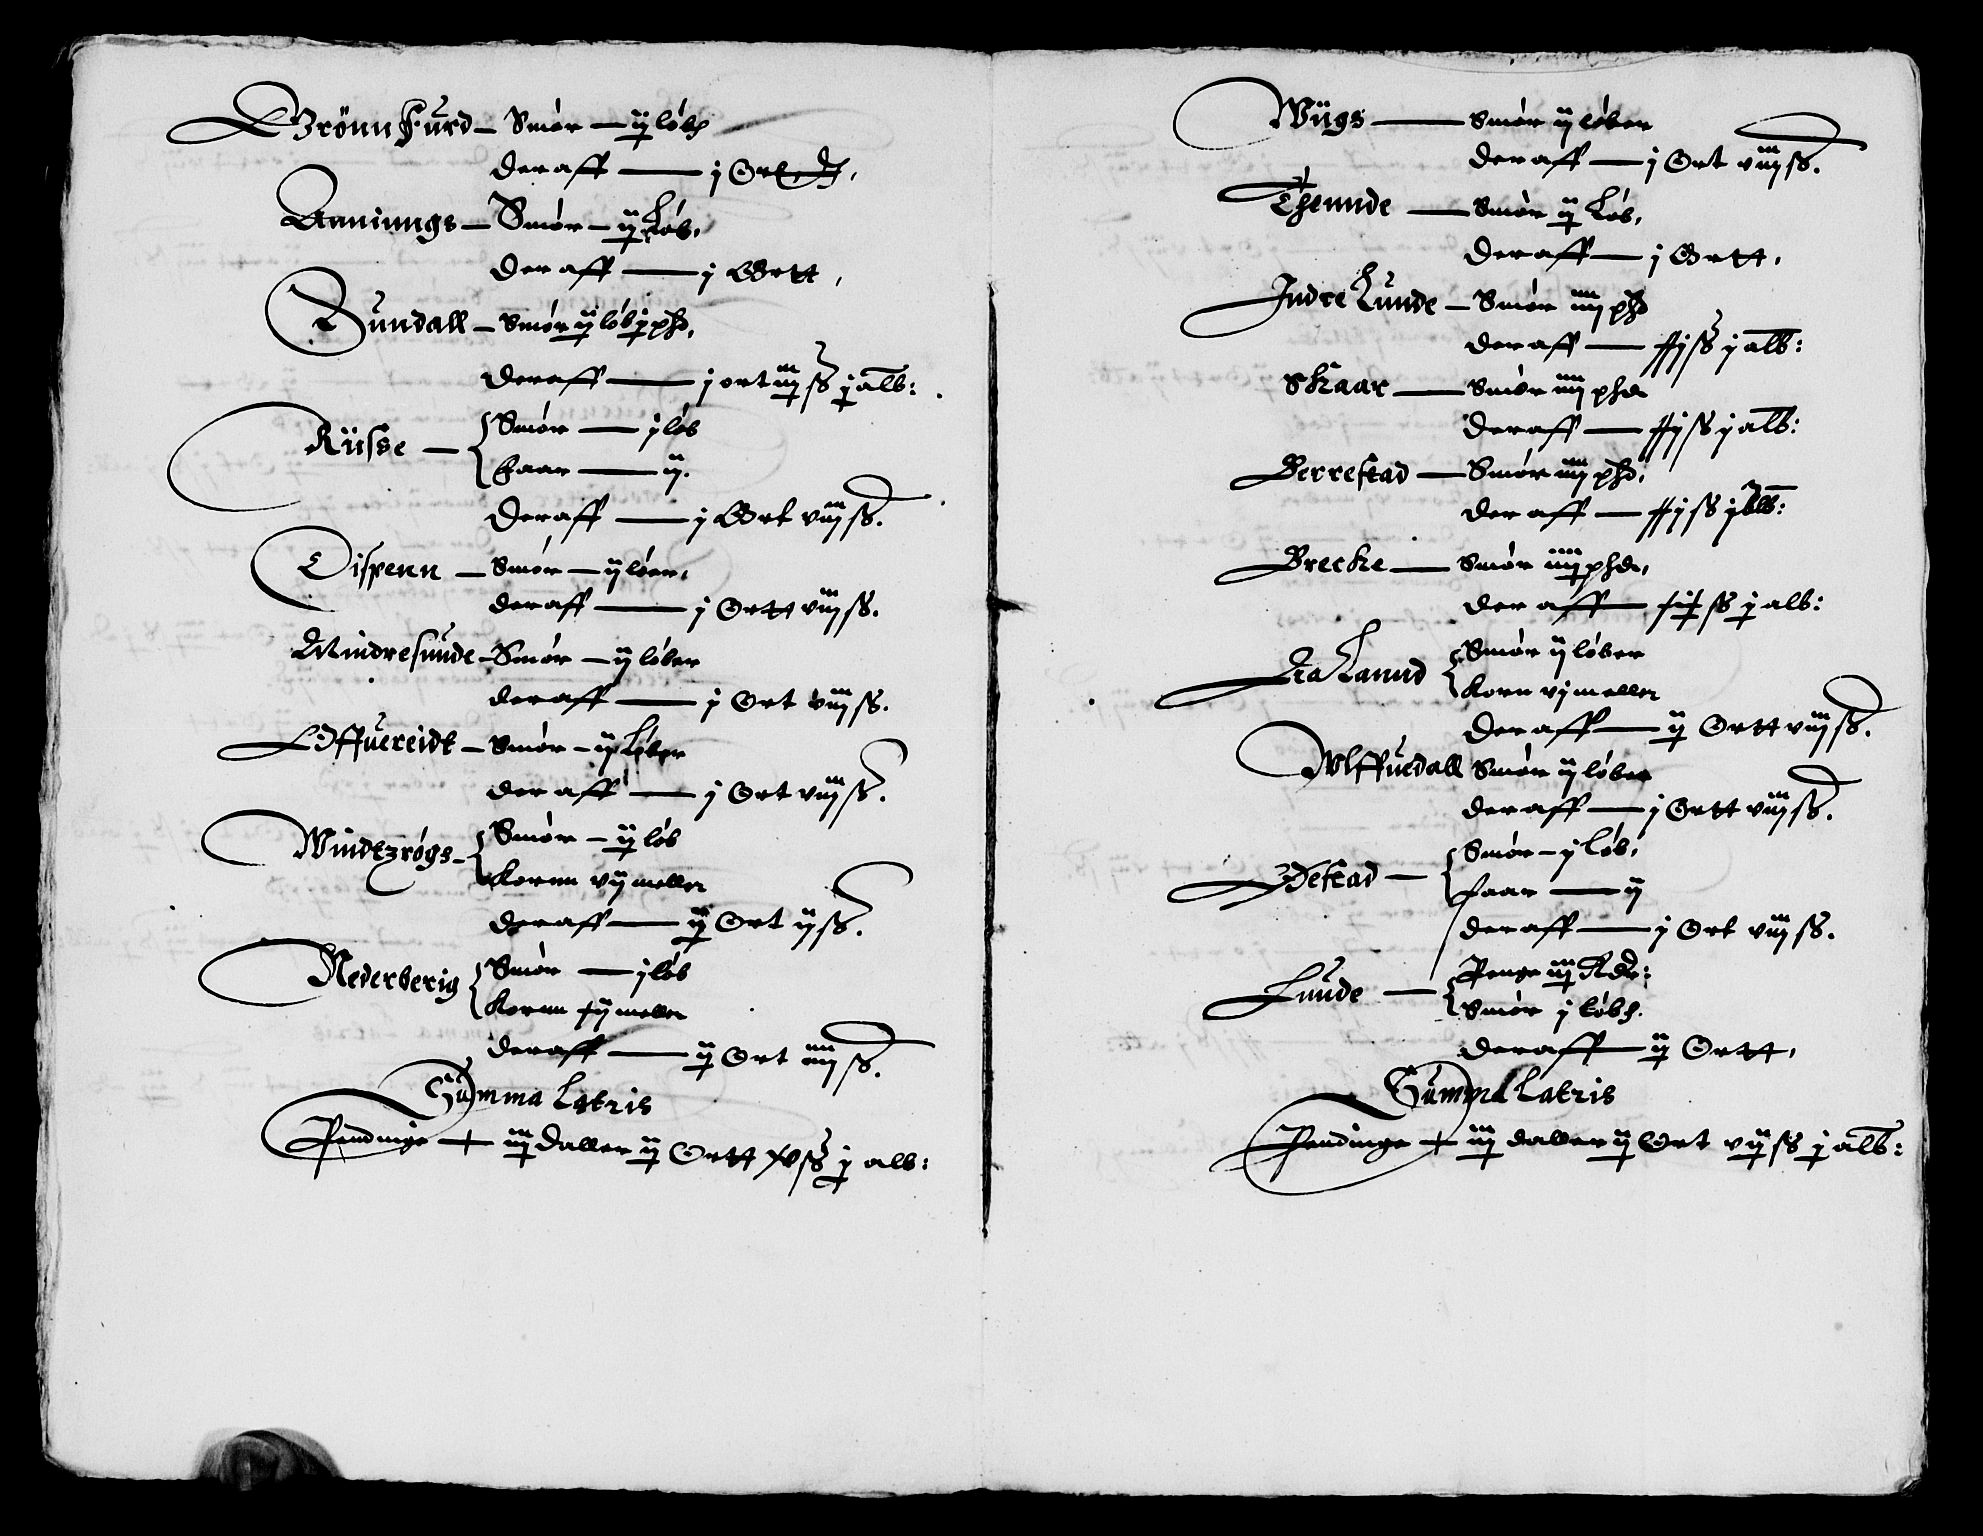 Grönnfurd – Smör – ij löb
deraff — j Ort
Anninngs – Smör – ij Löb,
deraff — j Ortt,
Sundall – Smör ij löb j phd,
deraff — j ort iiij ß j alb:
Rüsse – Smör — j löb
faar — ij.
deraff — j Ort viij ß.
Dispenn – Smör – ij löer,
deraff — j Ortt viij ß.
Mindresunde – Smör – ij löber
deraff — j Ort viij ß.
Offuereidt – Smör – ij Löber
deraff — j Ort viij ß.
Windtzrögs – Smör – ij löb
Kornn vij meller
deraff — ij Ort ij ß.
Nederberig Smör — j löb
Kornn meller
deraff — ij Ort iiij ß.
Summa Latris
Pendinge iiij daller ij Ortt xv ß j alb:
Wügs — Smör ij löber
deraff — j Ort viij ß.
Thennde — Smör ij Löb,
deraff — j Ortt,
Indre Lunde – Smör iiij phd
deraff — ß j alb:
Skaar — Smör iiij phd
deraff — ß j alb:
Berrestad — Smör iiij phd,
deraff — ß j alb:
Brecke — Smör phd,
deraff — ß j alb:
Aalannd Smör ij löber
Korn vj meller
deraff — ij Ortt viij ß.
Wlffuedall Smör ij löber
deraff — j Ortt viij ß.
Smör – j löb,
faar — ij
deraff — j Ort viij ß.
Lunde — Penge iij Rdr:
Smör j löb
deraff — ij Ortt,
Summa Latris
Pendinge iiij daller ij Ort vij ß j alb: